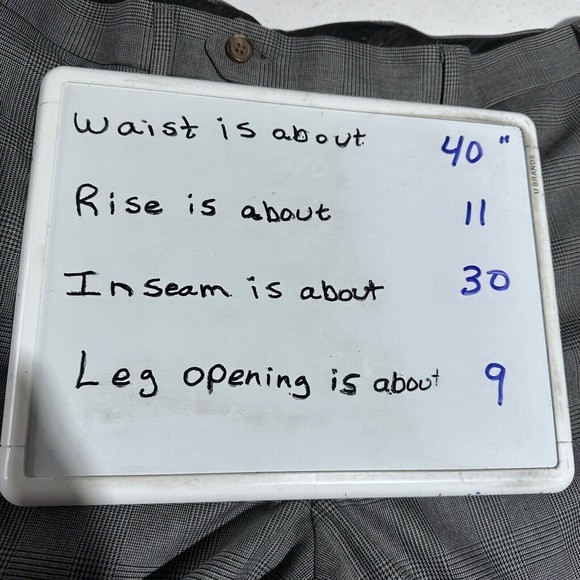 Waist is about 40"
U BRANDS
Rise is about 11
Inseam is about 30
Leg opening is about 9